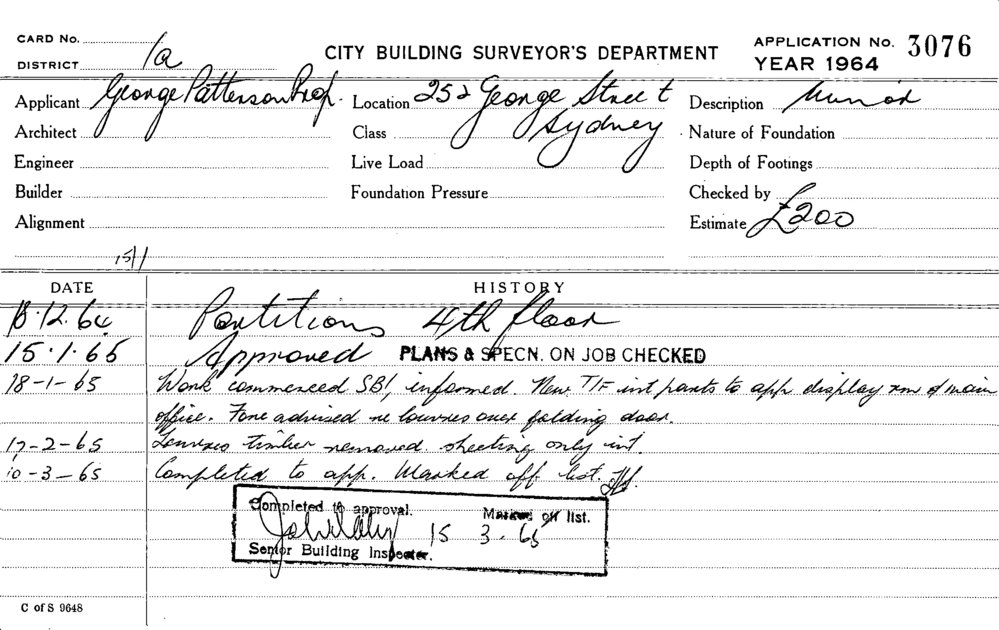 CARD No. CITY BUILDING SURVEYOR'S DEPARTMENT APPLICATION No. 3076
DISTRICT 1a YEAR 1964
Applicant George Patterson Prop. Location 252 George Street Description Minor
Architect Class Sydney Nature of Foundation
Engineer Live Load Depth of Footings
Builder Foundation Pressure Checked by
Alignment Estimate £200
15/1
DATE HISTORY
18.12.64 Partitions 4th floor
15.1.65 Approved PLANS & SPECN. ON JOB CHECKED
18-1-65 Work commenced SBI informed. New T/F int parts to app display rm & main
office. Fore advised re louvres over folding door.
17-2-65 Louvres timber removed. sheeting only int.
10-3-65 Completed to app. Marked off list.
Completed to approval. Marked off list.
15 3.65
Senior Building Inspector.
C of S 9648